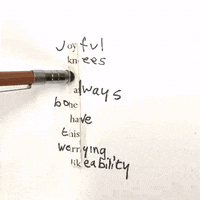 Joyful
knees
always
bone
have
this
worrying
likeability